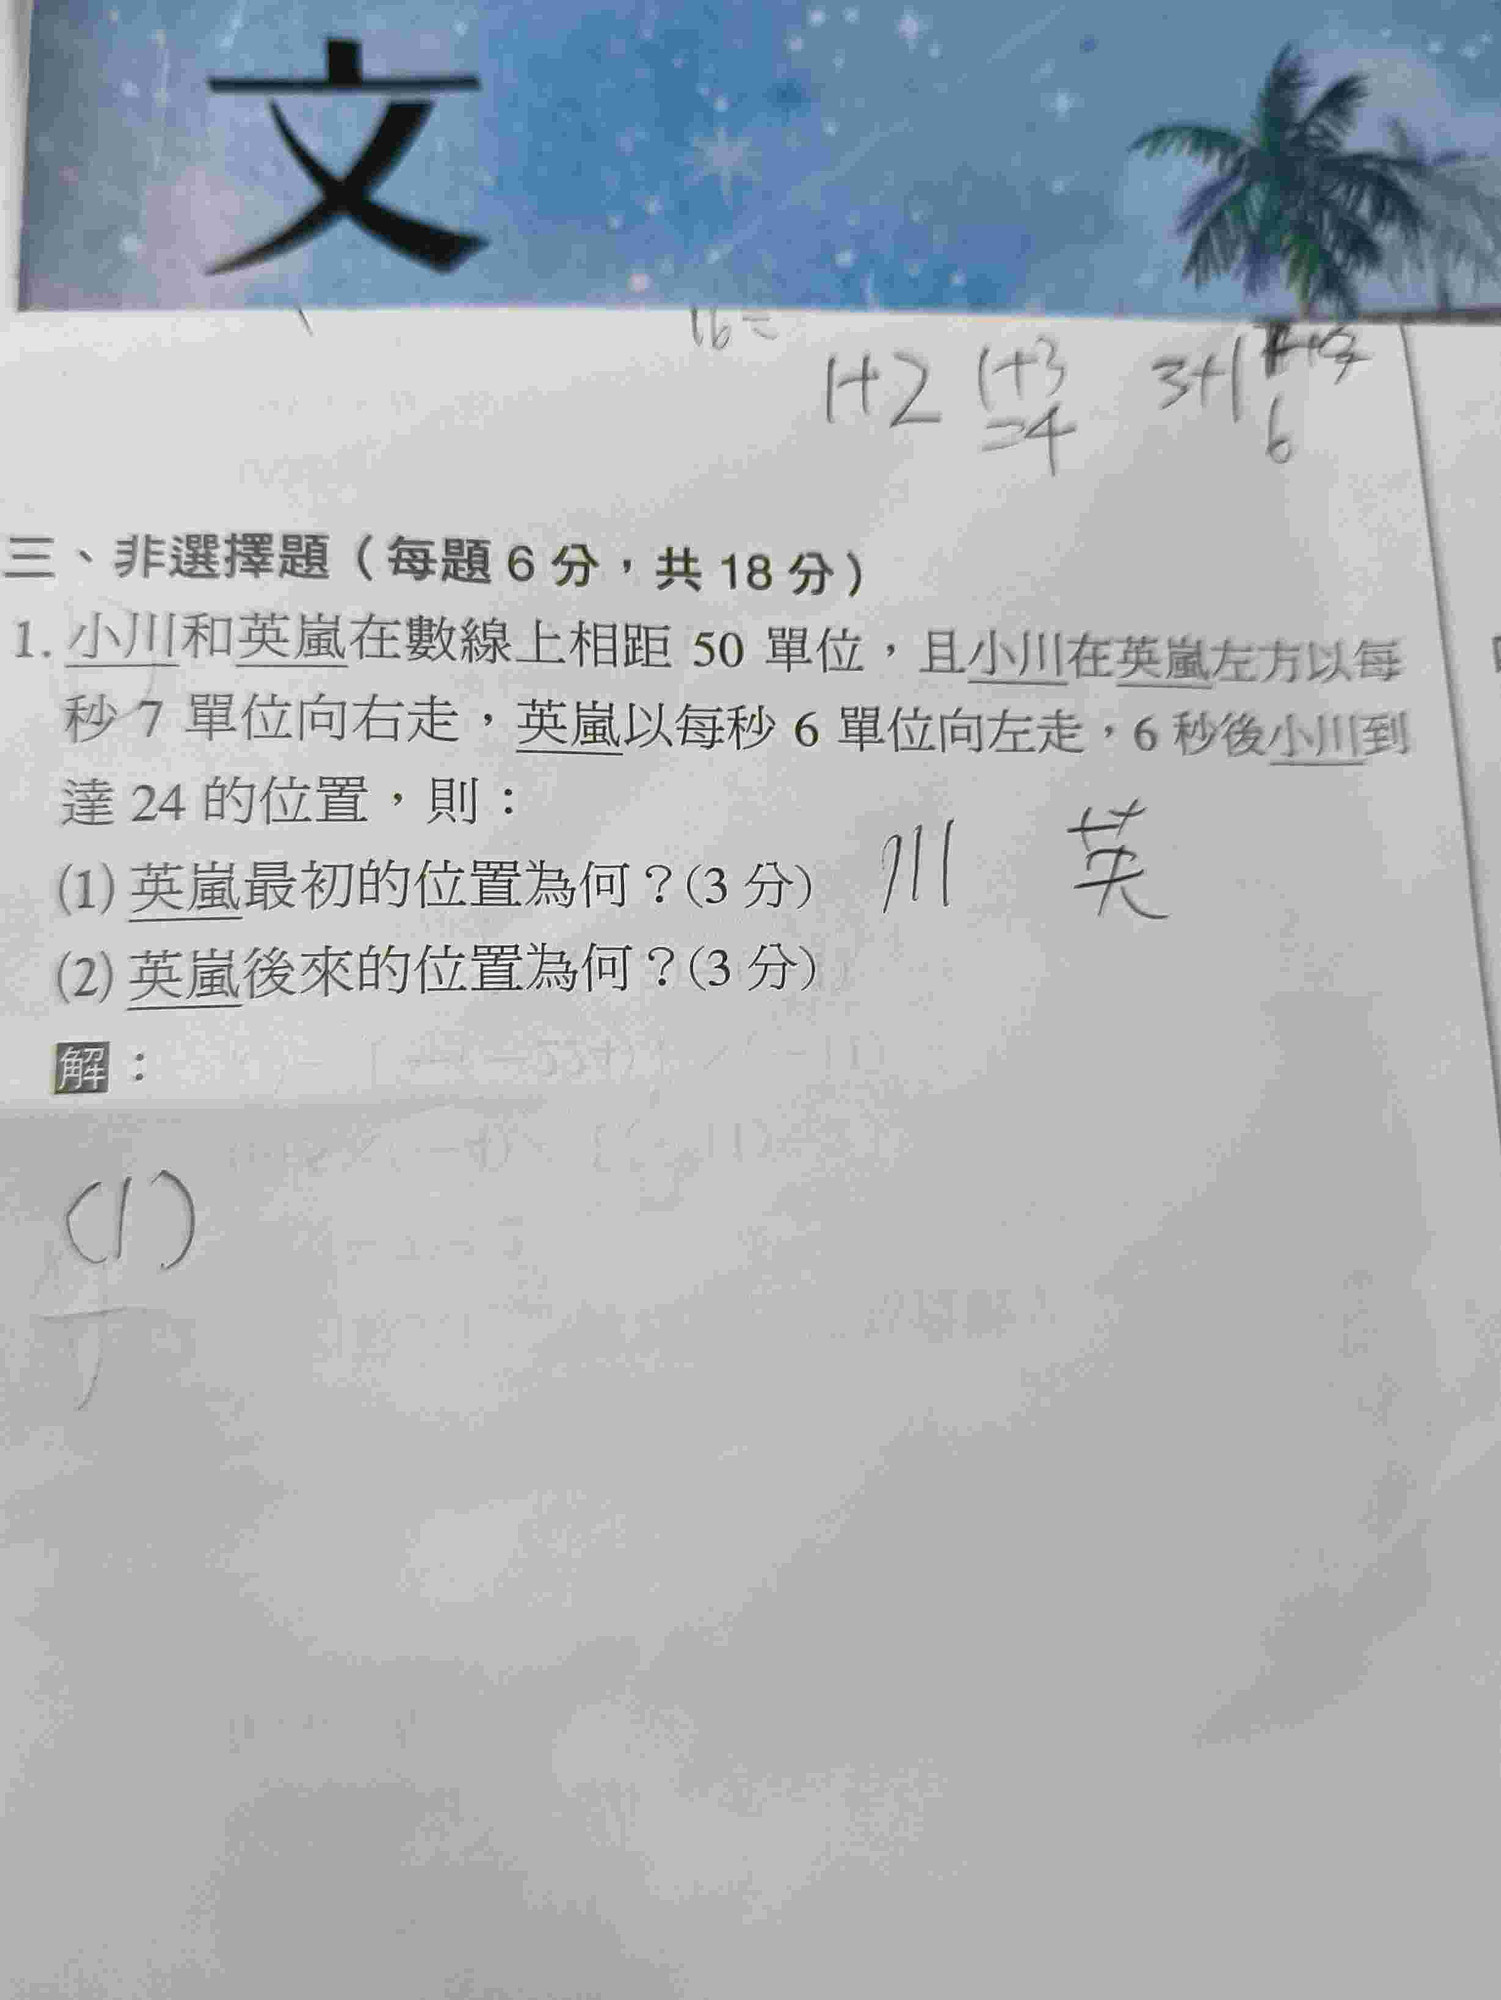 文
16=
1+2 1+3 3+1
=4 6
三、非選擇題（每題 6 分，共 18 分）
1. 小川和英嵐在數線上相距 50 單位，且小川在英嵐左方以每
秒 7 單位向右走，英嵐以每秒 6 單位向左走，6 秒後小川到
達 24 的位置，則：
(1) 英嵐最初的位置為何？(3 分) 川 英
(2) 英嵐後來的位置為何？(3 分)
解：
(1)